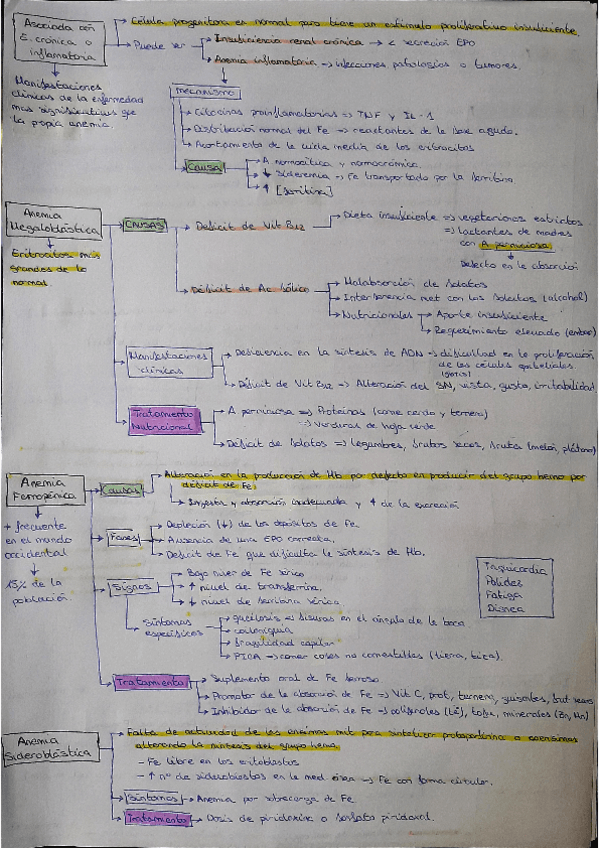 Asociada con E. crónica o inflamatoria
→ Célula progenitora es normal pero tiene un estímulo proliferativo insuficiente.
→ Puede ser → Insuficiencia renal crónica → < secreción EPO
→ Anemia inflamatoria → infecciones patologías o tumores.
Manifestaciones clínicas de la enfermedad mas significativas que la propia anemia.
mecanismo
→ Citocinas proinflamatorias → TNF y IL-1
→ Distribución normal del Fe → reactantes de la fase aguda.
→ Acortamiento de la vida media de los eritrocitos
CAUSA → A normocítica y normocrómica.
→ ↓ sideremia → Fe transportado por la ferritina
→ ↑ [ferritina]
Anemia Megaloblástica
Eritrocitos más grandes de lo normal.
CAUSAS → Déficit de Vit B12 → Dieta insuficiente → vegetarianos estrictos
→ lactantes de madres con A perniciosa
Defecto en la absorción
→ Déficit de Ac fólico → Malabsorción de folatos
→ Interferencia met con los folatos (alcohol)
→ Nutricionales → Aporte insuficiente
→ Requerimiento elevado
Manifestaciones clínicas → Deficiencia en la síntesis de ADN → dificultad en la proliferación de las células epiteliales.
→ Déficit de Vit B12 → Alteración del SN, vista, gusto, irritabilidad
Tratamiento Nutricional → A perniciosa → Proteínas (carne cerdo y ternera)
→ Verduras de hoja verde
→ Déficit de folatos → legumbres, frutos secos, frutas (melón, plátano)
Anemia Ferropénica
+ frecuente en el mundo occidental
15% de la población
Causas → Alteración en la producción de Hb por defecto en producir del grupo hemo por déficit de Fe.
→ Ingesta y absorción inadecuada y ↑ de la excreción
Fases → Depleción (↓) de los depósitos de Fe.
→ Ausencia de una EPO correcta.
→ Déficit de Fe que dificulta la síntesis de Hb.
Signos → Bajo nivel de Fe sérico
→ ↑ nivel de transferrina.
→ ↓ nivel de ferritina sérica
Síntomas específicos → fisuras en el ángulo de la boca
→ coiloniquia
→ fragilidad capilar
→ PICA → comer cosas no comestibles (tierra, tiza).
Taquicardia
Palidez
Fatiga
Disnea
Tratamiento → Suplemento oral de Fe ferroso
→ Promotor de la absorción de Fe → Vit C, prot, ternera, guisantes,
→ Inhibidor de la absorción de Fe → polifenoles (té), minerales (Zn, Mn)
Anemia Sideroblástica
→ Falta de actividad de las enzimas mit para sintetizar protoporfirina o coenzimas alterando la síntesis del grupo hemo
– Fe libre en los eritoblastos
– ↑ nº de sideroblastos en la med ósea → Fe con forma circular.
Síntomas → Anemia por sobrecarga de Fe
Tratamiento → Dosis de piridoxina o fosfato piridoxal.